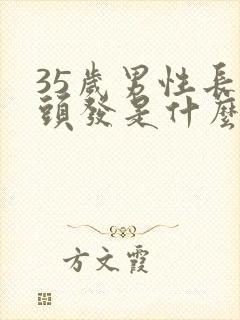 35歲男性長
頭發是什麼
方文霞